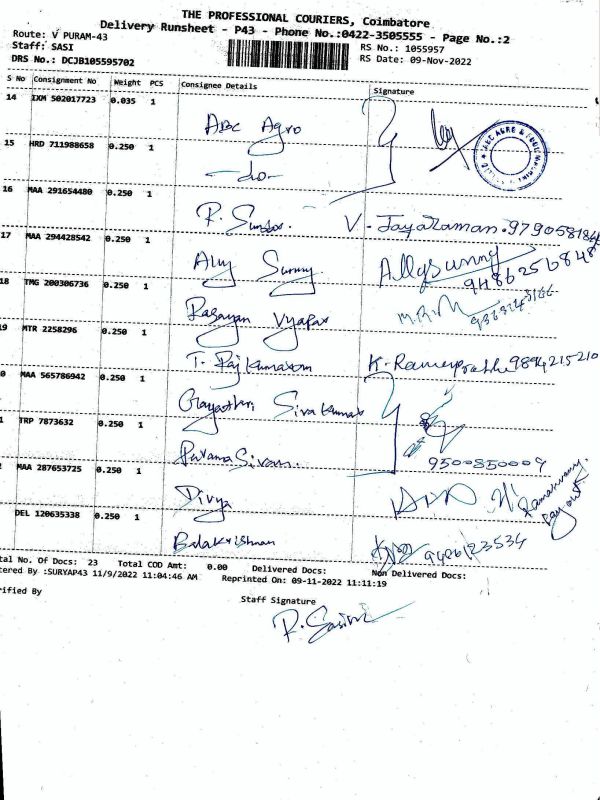 THE PROFESSIONAL COURIERS, Coimbatore
Delivery Runsheet - P43 - Phone No.:0422-3505555 - Page No.:2
Route: V PURAM-43
Staff: SASI
RS No.: 1055957
DRS No.: DCJB105595702
RS Date: 09-Nov-2022
S No Consignment No Weight PCS Consignee Details Signature
14 IXM 502017723 0.035 1 ABC Agro
15 HRD 711988658 0.250 1 -do-
16 MAA 291654480 0.250 1 R. Sundar. V. Jayaraman.
17 MAA 294428542 0.250 1 Ally Sunny. Allysunny
18 TMG 200306736 0.250 1 Rasayan Vyapar
19 MTR 2258296 0.250 1 T. Rajkumaram 9894215210
0 MAA 565786942 0.250 1 Gayathri Sivakumar
1 TRP 7873632 0.250 1 ParamaSivam. 9500850009
MAA 287653725 0.250 1 Divya
DEL 120635338 0.250 1 Balakrishnan 9486123534
tal No. Of Docs: 23 Total COD Amt: 0.00 Delivered Docs: Non Delivered Docs:
tered By :SURYAP43 11/9/2022 11:04:46 AM Reprinted On: 09-11-2022 11:11:19
rified By
Staff Signature
R. Sasi